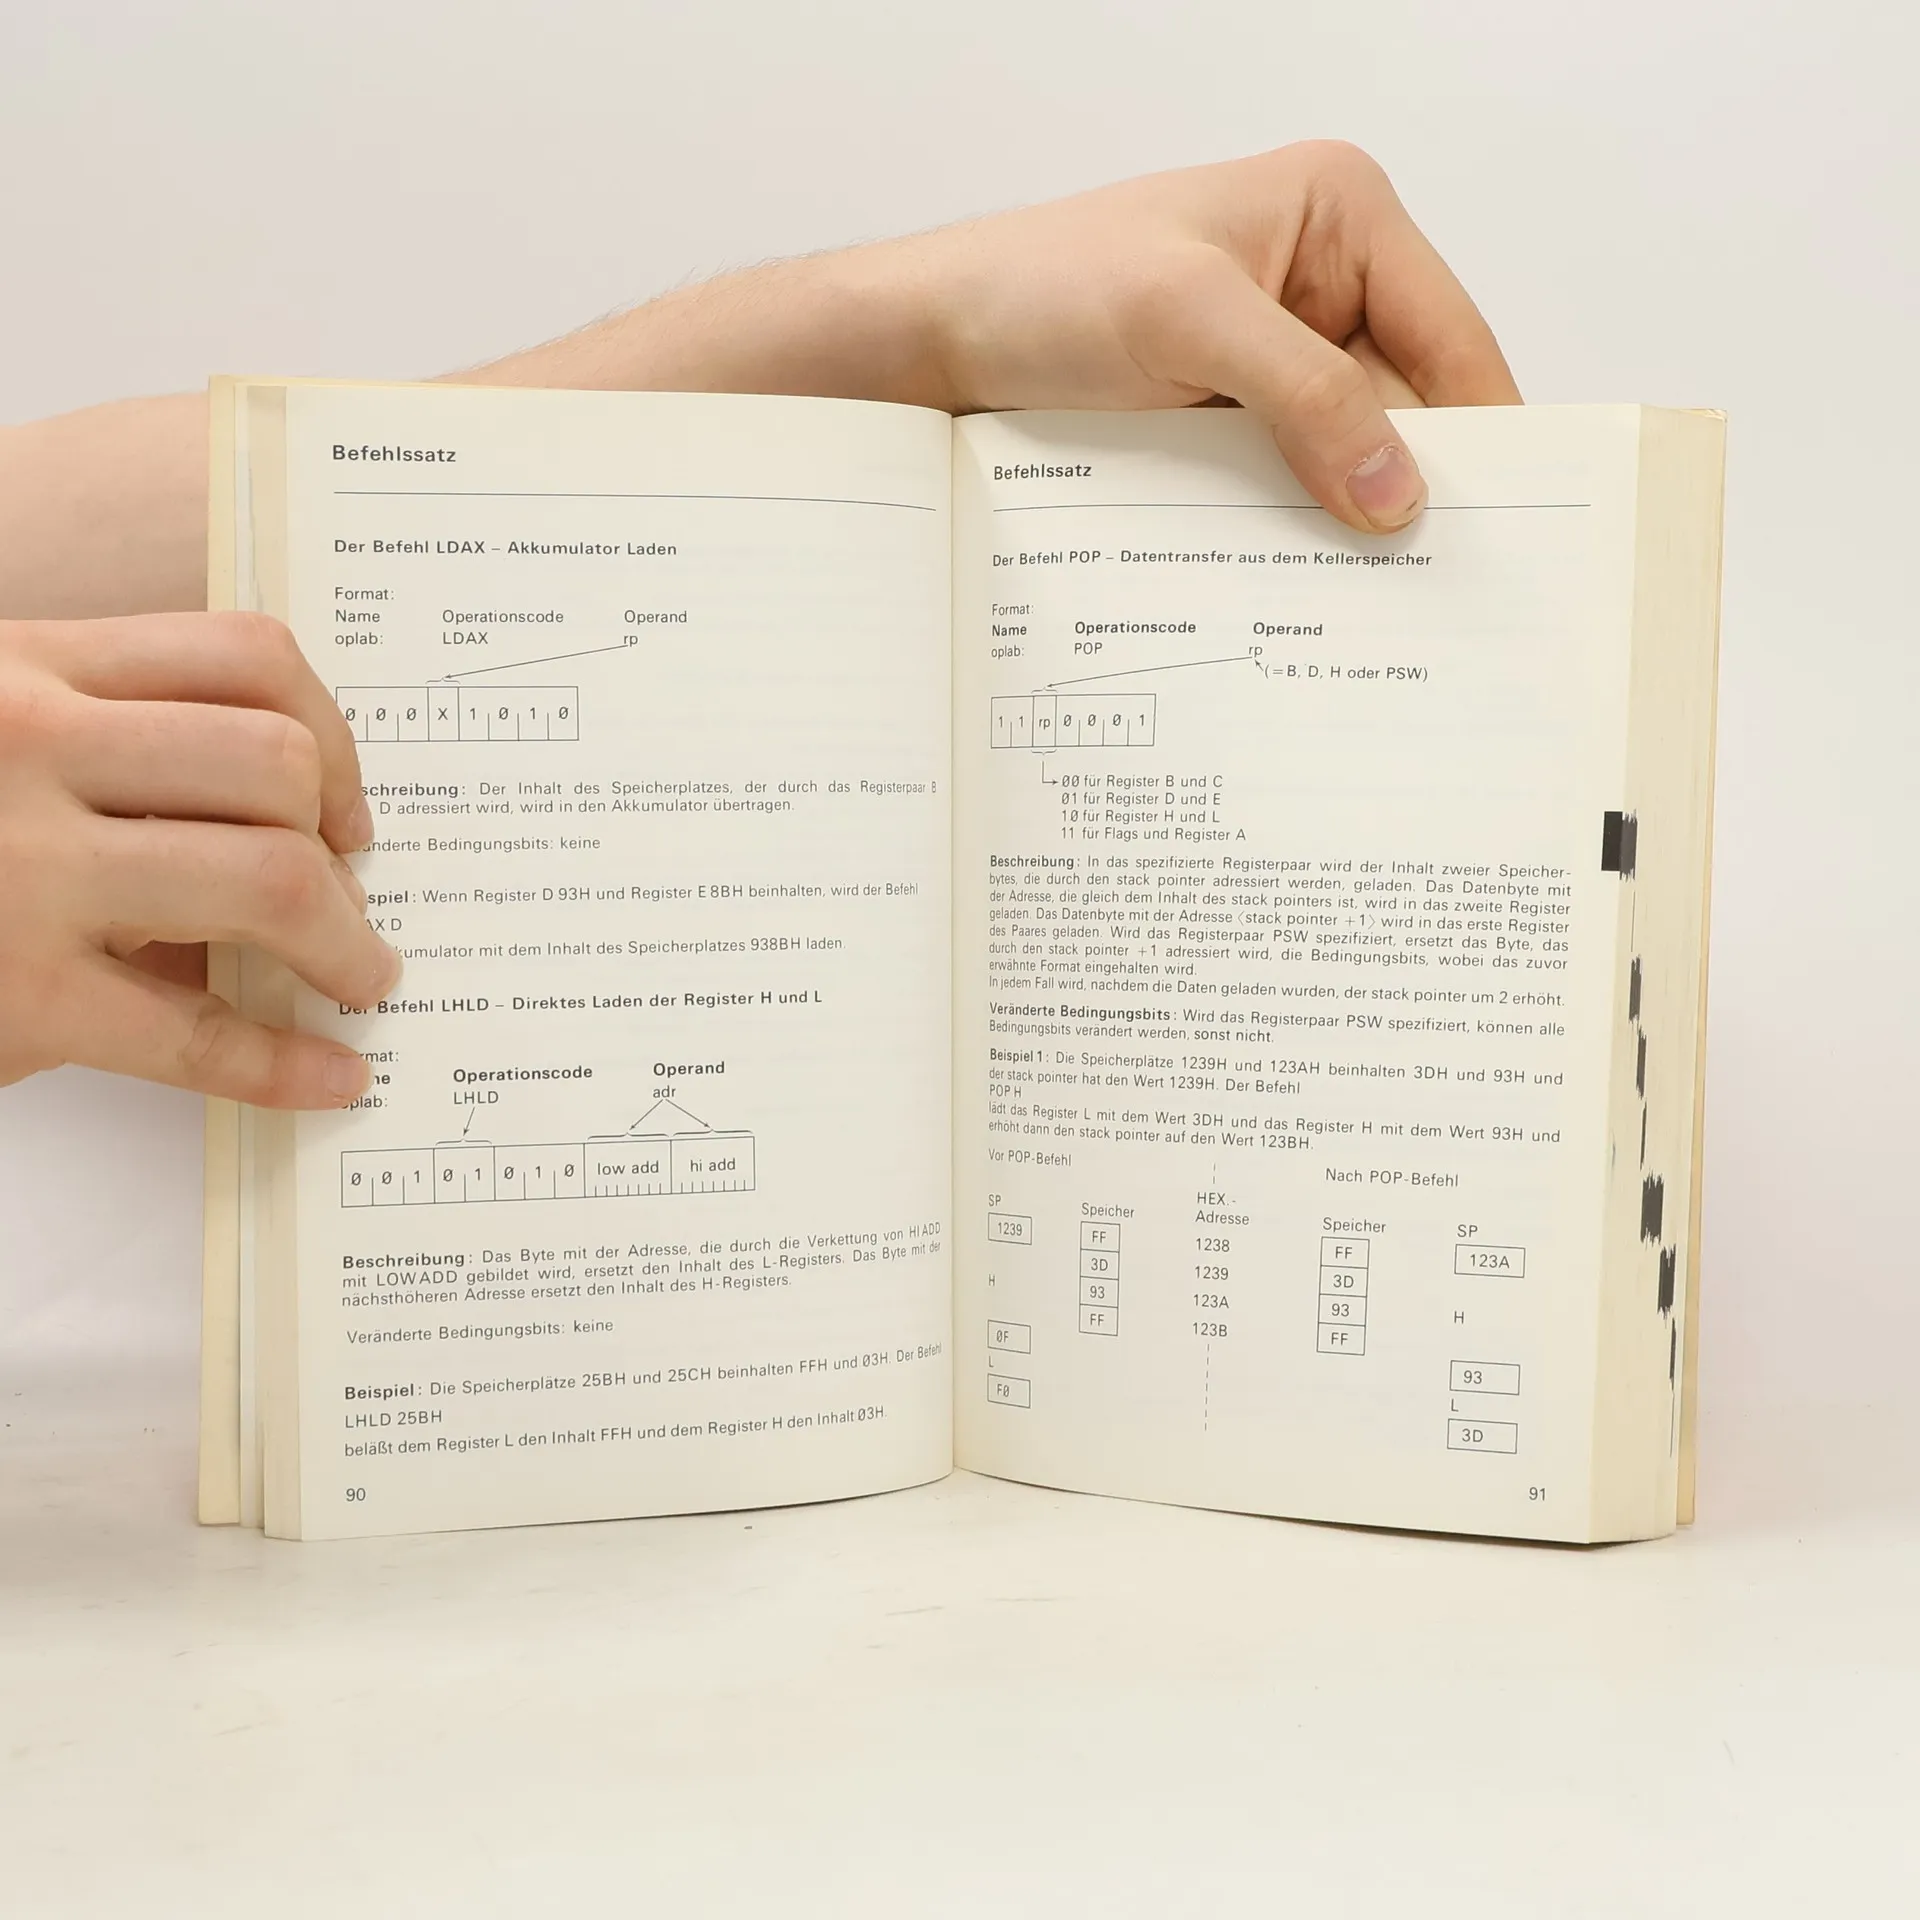 Befehlssatz
Der Befehl LDAX – Akkumulator Laden
Format:
Name Operationscode Operand
oplab: LDAX rp
Ø Ø Ø X 1 Ø 1 Ø
schreibung: Der Inhalt des Speicherplatzes, der durch das Registerpaar B
D adressiert wird, wird in den Akkumulator übertragen.
nderte Bedingungsbits: keine
spiel: Wenn Register D 93H und Register E 8BH beinhalten, wird der Befehl
AX D
kumulator mit dem Inhalt des Speicherplatzes 938BH laden.
Der Befehl LHLD – Direktes Laden der Register H und L
mat:
ne Operationscode Operand
oplab: LHLD adr
Ø Ø 1 Ø 1 Ø 1 Ø low add hi add
Beschreibung: Das Byte mit der Adresse, die durch die Verkettung von HI ADD
mit LOW ADD gebildet wird, ersetzt den Inhalt des L-Registers. Das Byte mit der
nächsthöheren Adresse ersetzt den Inhalt des H-Registers.
Veränderte Bedingungsbits: keine
Beispiel: Die Speicherplätze 25BH und 25CH beinhalten FFH und Ø3H. Der Befehl
LHLD 25BH
beläßt dem Register L den Inhalt FFH und dem Register H den Inhalt Ø3H.
90
Befehlssatz
Der Befehl POP – Datentransfer aus dem Kellerspeicher
Format:
Name Operationscode Operand
oplab: POP rp
(=B, D, H oder PSW)
1 1 rp Ø Ø Ø 1
ØØ für Register B und C
Ø1 für Register D und E
1Ø für Register H und L
11 für Flags und Register A
Beschreibung: In das spezifizierte Registerpaar wird der Inhalt zweier Speicher-
bytes, die durch den stack pointer adressiert werden, geladen. Das Datenbyte mit
der Adresse, die gleich dem Inhalt des stack pointers ist, wird in das zweite Register
geladen. Das Datenbyte mit der Adresse ⟨stack pointer +1⟩ wird in das erste Register
des Paares geladen. Wird das Registerpaar PSW spezifiziert, ersetzt das Byte, das
durch den stack pointer +1 adressiert wird, die Bedingungsbits, wobei das zuvor
erwähnte Format eingehalten wird.
In jedem Fall wird, nachdem die Daten geladen wurden, der stack pointer um 2 erhöht.
Veränderte Bedingungsbits: Wird das Registerpaar PSW spezifiziert, können alle
Bedingungsbits verändert werden, sonst nicht.
Beispiel 1: Die Speicherplätze 1239H und 123AH beinhalten 3DH und 93H und
der stack pointer hat den Wert 1239H. Der Befehl
POP H
lädt das Register L mit dem Wert 3DH und das Register H mit dem Wert 93H und
erhöht dann den stack pointer auf den Wert 123BH.
Vor POP-Befehl Nach POP-Befehl
SP Speicher HEX.- Adresse Speicher SP
1239 FF 1238 FF 123A
3D 1239 3D
H 93 123A 93 H
ØF FF 123B FF 93
L L
FØ 3D
91